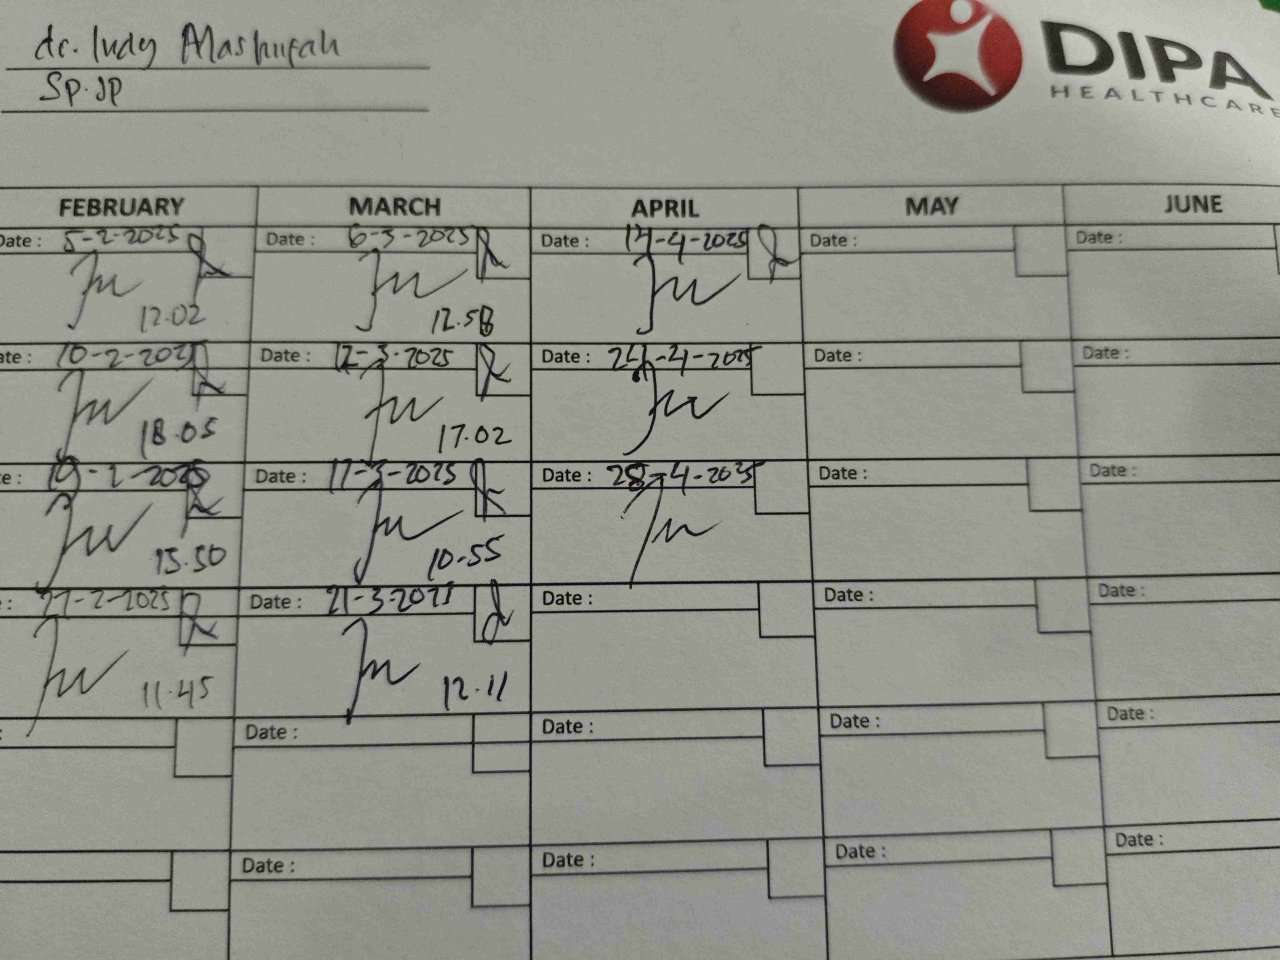 dr. Indy
Sp.JP
DIPA
HEALTHCARE
FEBRUARY MARCH APRIL MAY JUNE
Date : 5-2-2025 Date : 6-3-2025 Date : 14-4-2025 Date : Date :
12.02 12.58
ate : 10-2-2025 Date : 12-3-2025 Date : 24-4-2025 Date : Date :
18.05 17.02
e : 19-2-2025 Date : 17-3-2025 Date : 28-4-2025 Date : Date :
15.50 10-55
: 27-2-2025 Date : 21-3-2025 Date : Date : Date :
11.45 12.11
: Date : Date : Date : Date :
Date : Date : Date : Date :